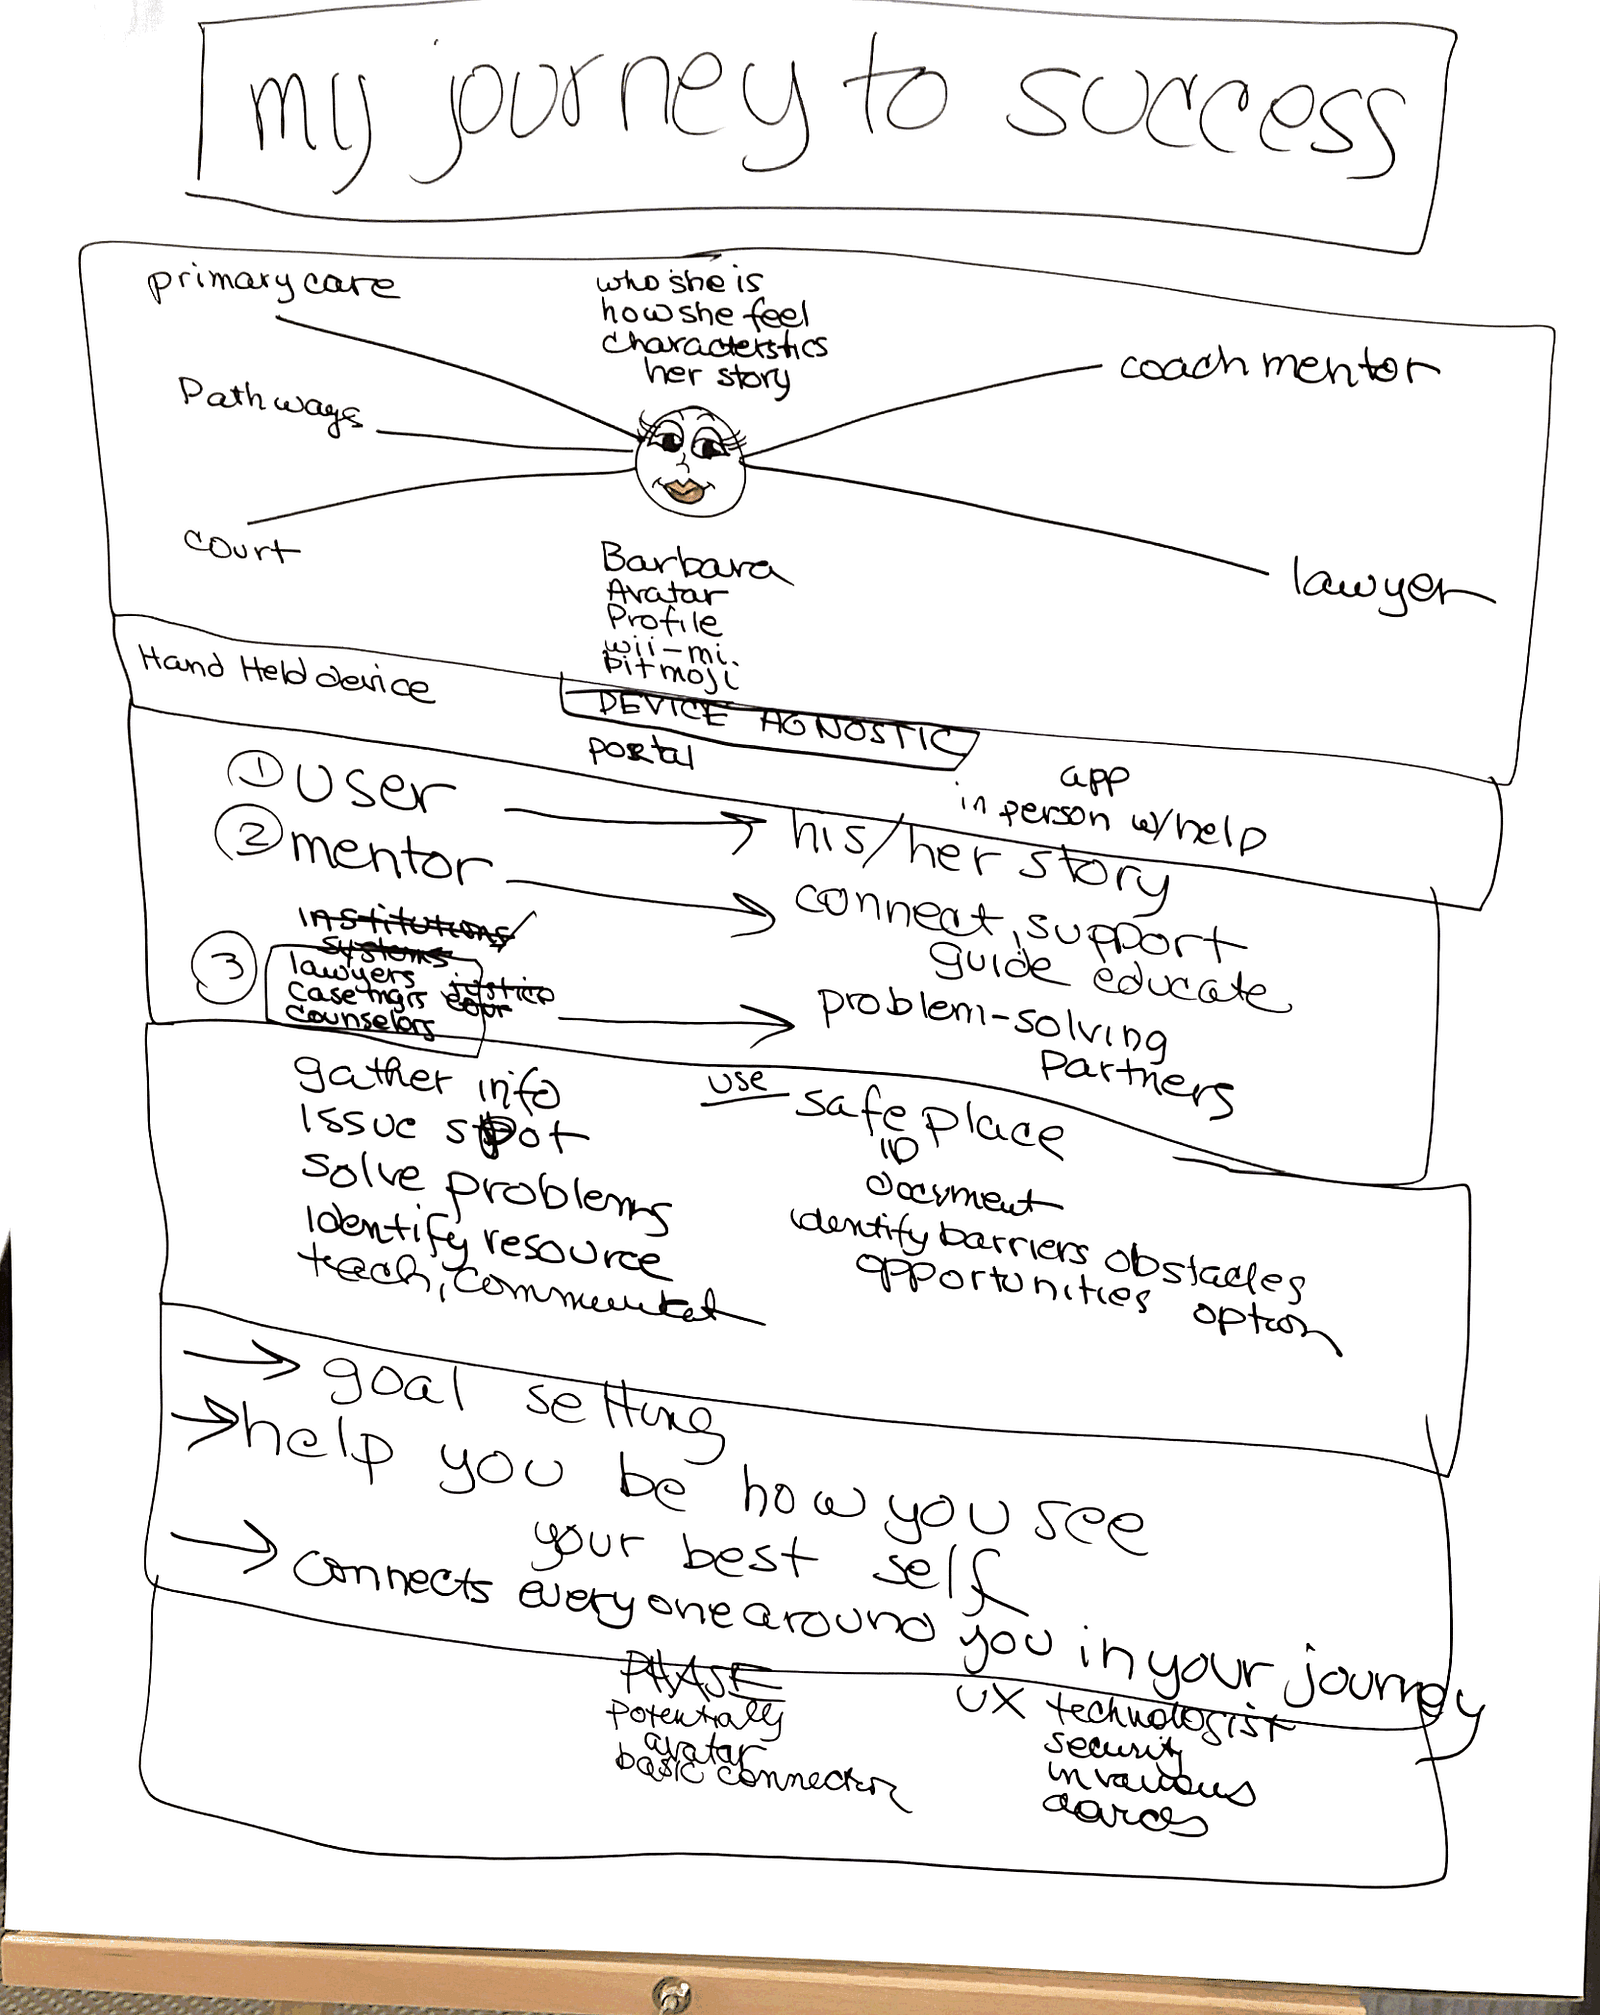 my journey to success
primary care
who she is
how she feel
characterstics
her story
coach mentor
Pathways
court
lawyer
Barbara
Avatar
Profile
wii-mi.
bitmoji
Hand Held device
DEVICE AGNOSTIC
portal
app
in person w/help
① user → his/her story
② mentor → connect, support
guide educate
institutions
systems
③ lawyers justice
case mgrs
counselors → problem-solving
Partners
gather info
issue spot
solve problems
identify resource
teach,
use safe place
ID
document
identify barriers obstacles
opportunities option
→ goal setting
→ help you be how you see
your best self
→ connects everyone around you in your journey
PHASE
potentially
avatar
basic connector
UX technologist
security
in various